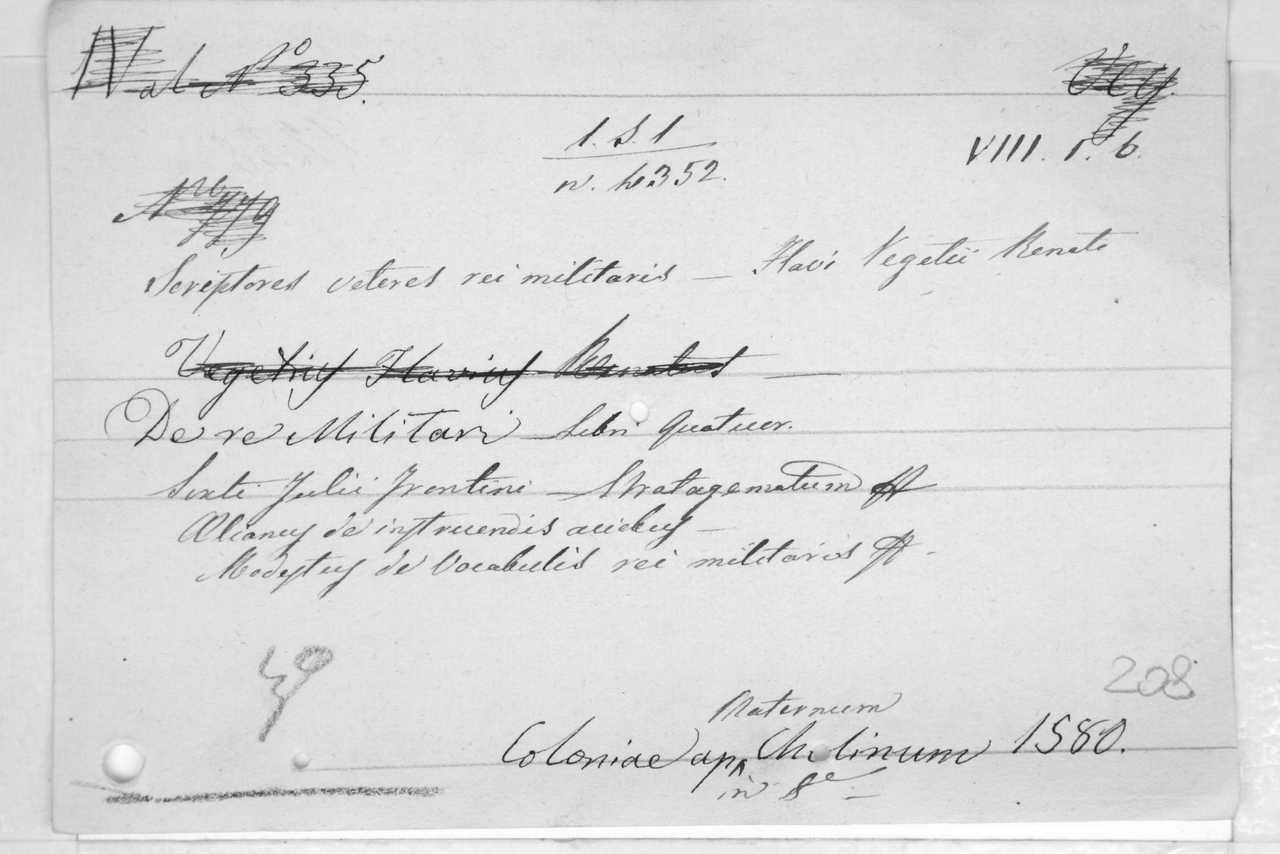 Nat N° 335.
Veg.
1. S. 1
VIII. r. 6.
n. 4352.
Nro 779
Scriptores veteres rei militaris — Flavi Vegetii Renati
Vegetius Flavius Renatus —
De re Militari Libri Quatuor.
Sexti Julii Frontini — Stratagematum
Ælianus de instruendis aciebus —
Modestus de Vocabulis rei militaris
208
Maternum
Coloniae ap. Cholinum 1580.
in 8°